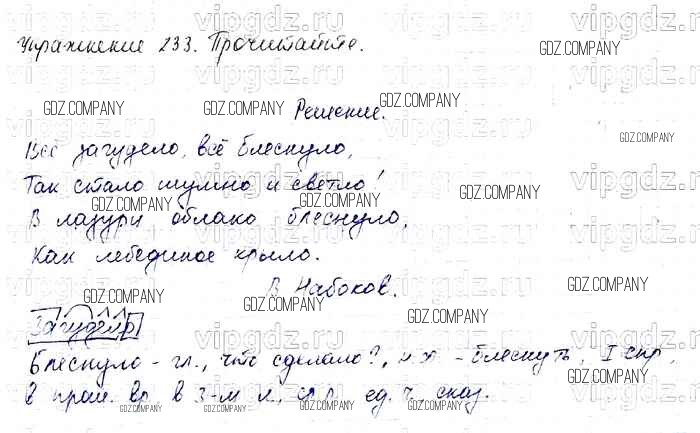 Упражнение 233. Прочитайте.
Решение.
Всё загудело, всё блеснуло,
Так стало шумно и светло!
В лазури облако блеснуло,
Как лебединое крыло.
В Набоков.
Загудело
Блеснуло - гл., что сделало?, н.ф. - блеснуть, I спр,
в прош. вр, в 3-м л, ср. р, ед. ч, сказ.